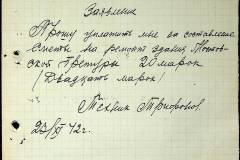 Заявление
Прошу уплатить мне за составление
сметы на ремонт здания Мостов-
ской претуры 20 марок
/Двадцать марок/
Техник Трифонов.
42 г.